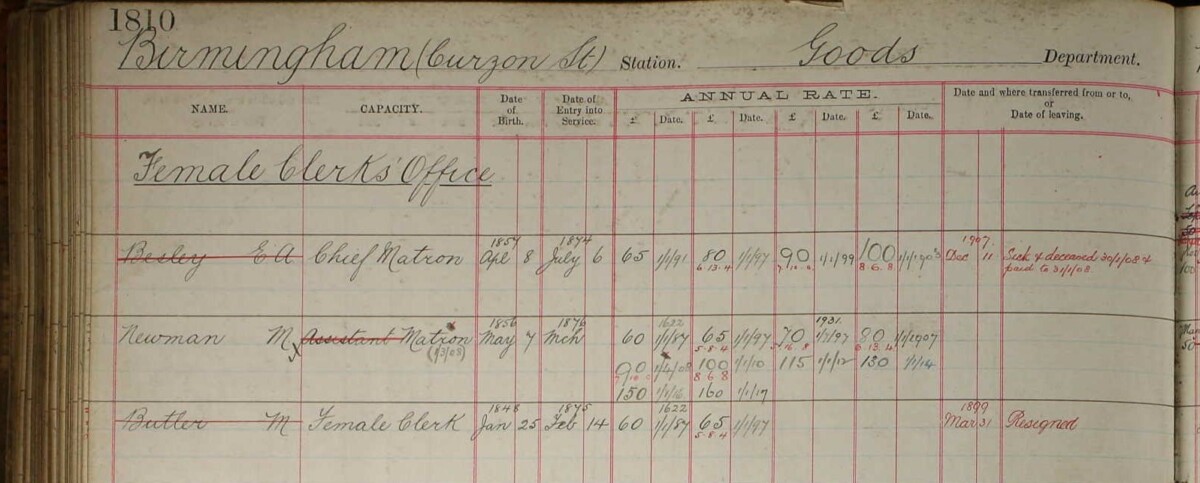 1810
Birmingham (Curzon St) Station. Goods Department.
NAME. CAPACITY. Date of Birth. Date of Entry into Service. ANNUAL RATE. Date and where transferred from or to, or Date of leaving.
£ Date. £ Date. £ Date. £ Date.
Female Clerks' Office
1857 1874 1907
Besley E A Chief Matron Apl 8 July 6 65 1/1/91 80 1/1/97 90 1/1/99 100 1/1/1903 Dec 11 Sick & deceased 30/1/08 &
6.13.4 7.10.0 8.6.8 paid to 31/1/08
1856 1876 1622 1931
Newman M x Assistant Matron May 7 Mch 60 1/1/87 65 1/1/97 70 1/7/97 80 1/1/1907
(1/3/08) 5.8.4 6.13.4
90 1/4/08 100 1/1/10 115 1/1/12 130 1/1/14
7.10.0 8.6.8
150 1/1/16 160 1/1/17
1848 1875 1622 1899
Butler M Female Clerk Jan 25 Feb 14 60 1/1/87 65 1/1/97 Mar 31 Resigned
5.8.4